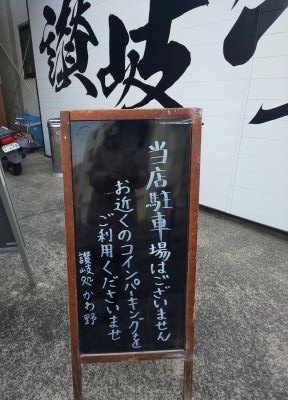 讃岐う
当店駐車場はございません
お近くのコインパーキングを
ご利用くださいませ
讃岐処 かわ野